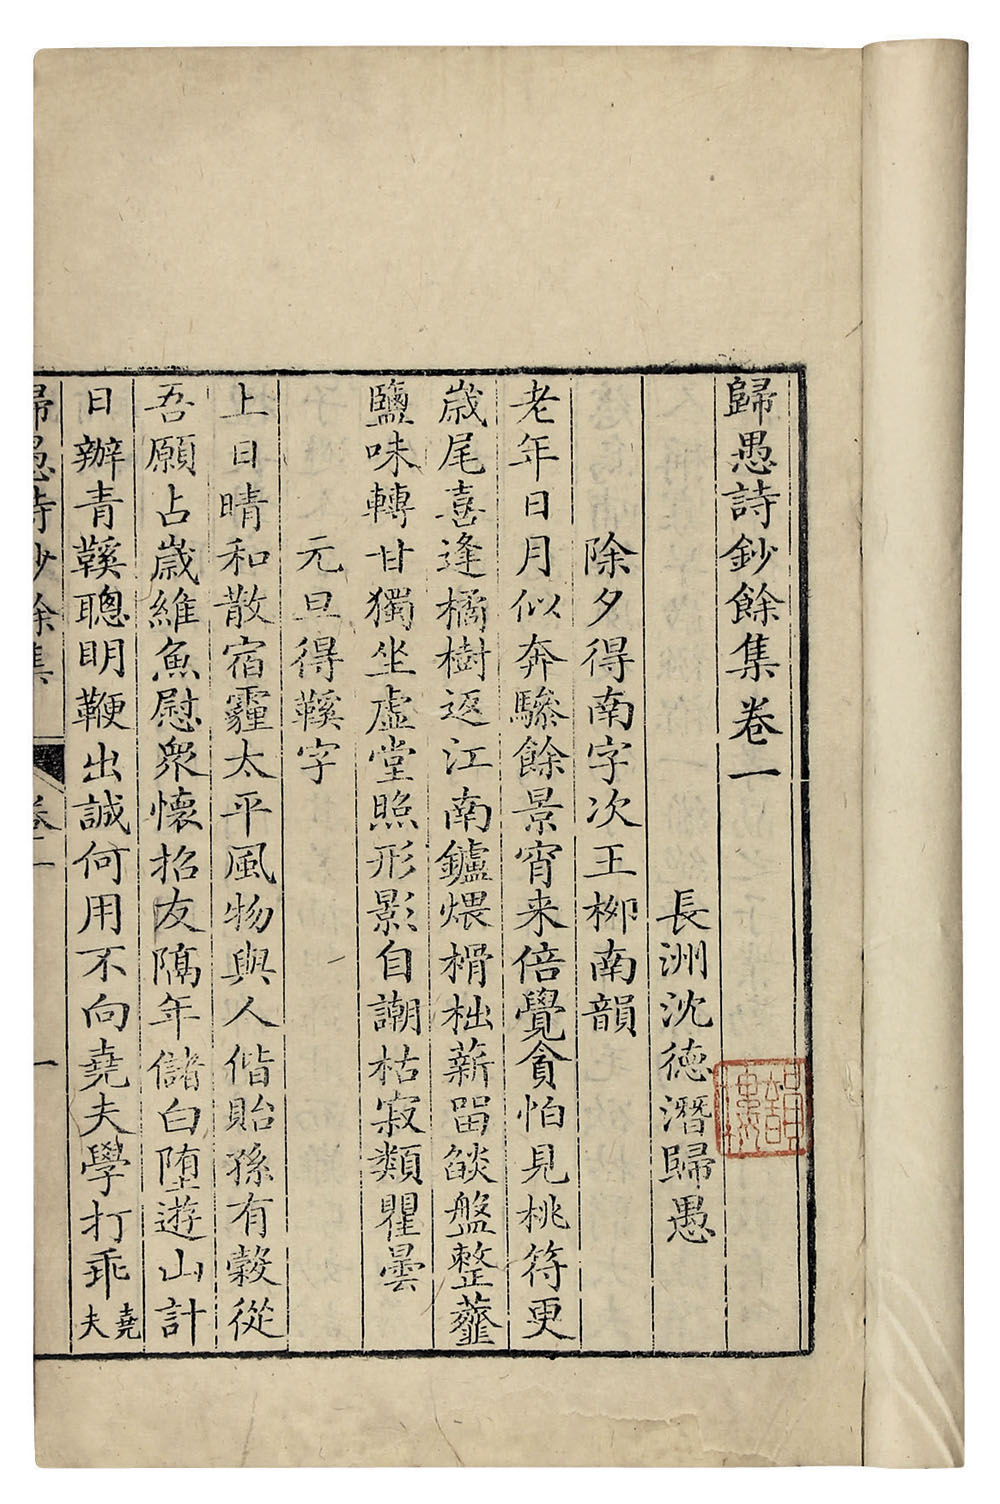 歸愚詩鈔餘集卷一
長洲沈德潛歸愚
除夕得南字次王柳南韻
老年日月似奔驂餘景宵来倍覺貪怕見桃符更
歲尾喜逢橘樹返江南鑪煨榾柮薪留燄盤整虀
鹽味轉甘獨坐虛堂照形影自謿枯寂類瞿曇
元旦得鞵字
上日晴和散宿霾太平風物與人偕貽孫有穀從
吾願占歲維魚慰衆懷招友隔年儲白墮遊山計
日辦青鞵聰明鞭出誠何用不向堯夫學打乖堯夫
歸愚詩鈔餘集 卷一 一